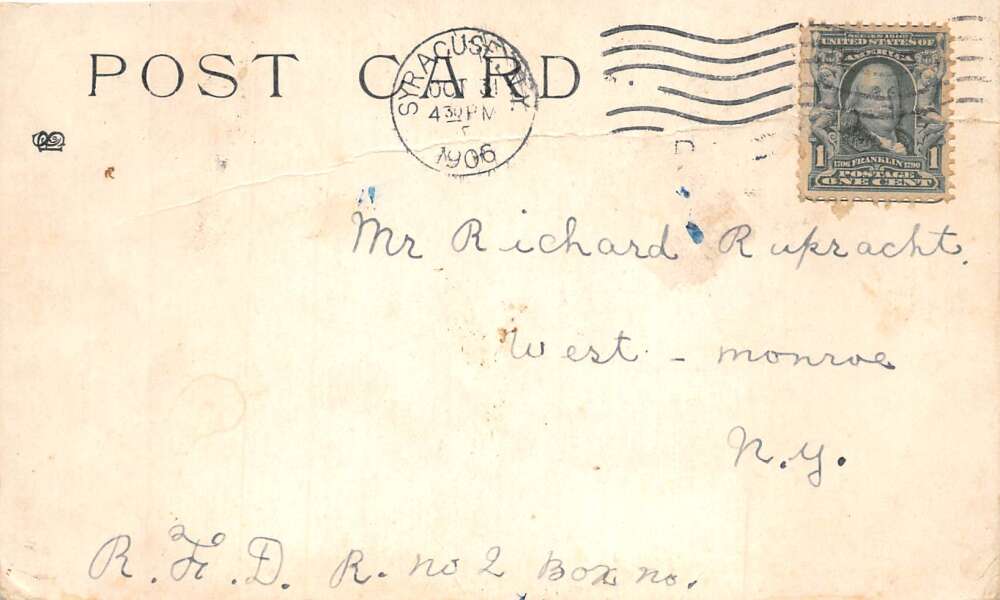 POST CARD
SYRACUSE, N.Y.
OCT 31
4 30 PM
1906
SERIES 1902
UNITED STATES OF
AMERICA
1 1706 FRANKLIN 1790 1
POSTAGE
ONE CENT
Mr Richard Rupracht.
West - monroe
N.Y.
R.F.D. R. no 2 Box no.